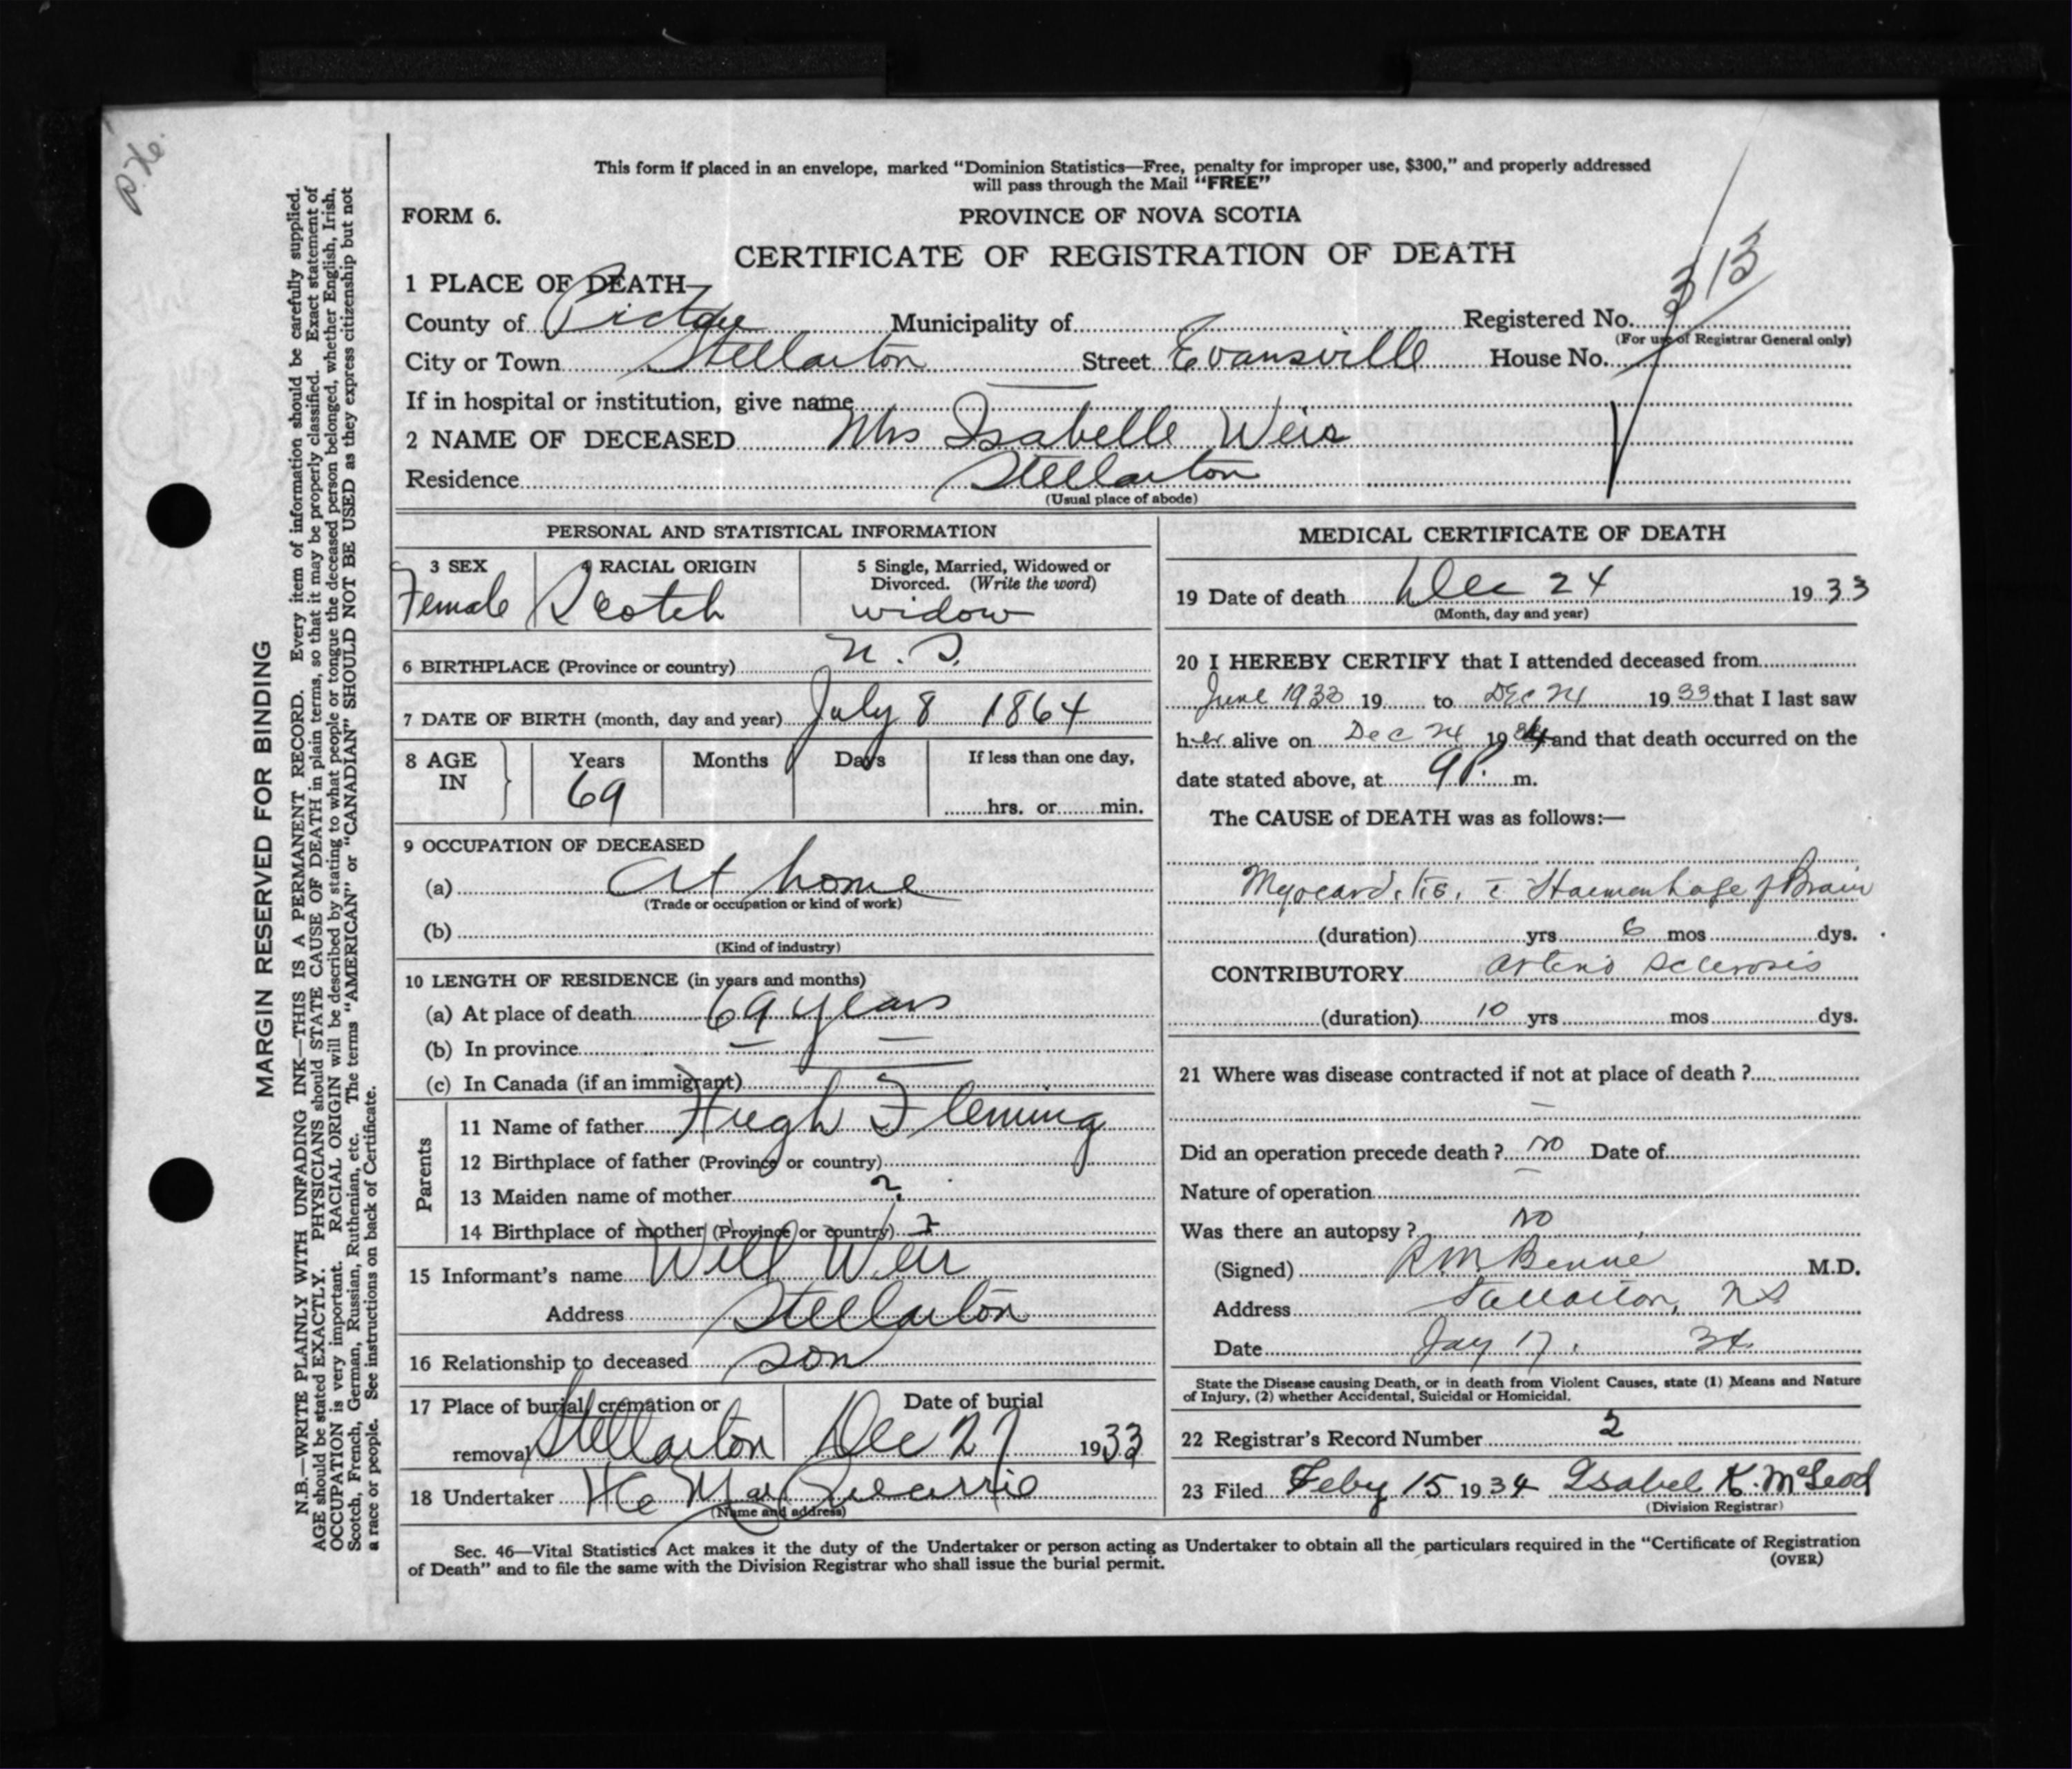 This form if placed in an envelope, marked "Dominion Statistics—Free, penalty for improper use, $300," and properly addressed
will pass through the Mail "FREE"
FORM 6.
PROVINCE OF NOVA SCOTIA
CERTIFICATE OF REGISTRATION OF DEATH
1 PLACE OF DEATH—
County of Pictou Municipality of Registered No. 313
(For use of Registrar General only)
City or Town Stellarton Street Evansville House No.
If in hospital or institution, give name
2 NAME OF DECEASED Mrs Isabelle Weir
Residence Stellarton
(Usual place of abode)
PERSONAL AND STATISTICAL INFORMATION
3 SEX
Female
4 RACIAL ORIGIN
Scotch
5 Single, Married, Widowed or
Divorced. (Write the word)
widow
6 BIRTHPLACE (Province or country) N.S.
7 DATE OF BIRTH (month, day and year) July 8 1864
8 AGE IN
Years
69
Months
Days
If less than one day,
hrs. or min.
9 OCCUPATION OF DECEASED
(a) At home
(Trade or occupation or kind of work)
(b)
(Kind of industry)
10 LENGTH OF RESIDENCE (in years and months)
(a) At place of death 69 years
(b) In province — —
(c) In Canada (if an immigrant)
Parents
11 Name of father Hugh Fleming
12 Birthplace of father (Province or country)
13 Maiden name of mother ?
14 Birthplace of mother (Province or country) ?
15 Informant's name Will Weir
Address Stellarton
16 Relationship to deceased son
17 Place of burial, cremation or
removal Stellarton
Date of burial
Dec 27 1933
18 Undertaker
(Name and address)
MEDICAL CERTIFICATE OF DEATH
19 Date of death Dec 24 1933
(Month, day and year)
20 I HEREBY CERTIFY that I attended deceased from
June 1933 19 to Dec 24 1933 that I last saw
her alive on Dec 24 19 and that death occurred on the
date stated above, at 9 P. m.
The CAUSE of DEATH was as follows:—
Myocarditis, c̄ Haemorrhage of Brain
(duration) yrs 6 mos dys.
CONTRIBUTORY Arterio Sclerosis
(duration) 10 yrs mos dys.
21 Where was disease contracted if not at place of death ?
—
Did an operation precede death ? no Date of
Nature of operation —
Was there an autopsy ? no
(Signed) M.D.
Address Stellarton, NS
Date Jay 17. 34.
State the Disease causing Death, or in death from Violent Causes, state (1) Means and Nature
of Injury, (2) whether Accidental, Suicidal or Homicidal.
22 Registrar's Record Number 2
23 Filed Feby 15 1934 Isabel K. McLeod
(Division Registrar)
Sec. 46—Vital Statistics Act makes it the duty of the Undertaker or person acting as Undertaker to obtain all the particulars required in the "Certificate of Registration
of Death" and to file the same with the Division Registrar who shall issue the burial permit.
(OVER)
MARGIN RESERVED FOR BINDING
N.B.—WRITE PLAINLY WITH UNFADING INK—THIS IS A PERMANENT RECORD. Every item of information should be carefully supplied.
AGE should be stated EXACTLY. PHYSICIANS should STATE CAUSE OF DEATH in plain terms, so that it may be properly classified. Exact statement of
OCCUPATION is very important. RACIAL ORIGIN will be described by stating to what people or tongue the deceased person belonged, whether English, Irish,
Scotch, French, German, Russian, Ruthenian, etc. The terms "AMERICAN" or "CANADIAN" SHOULD NOT BE USED as they express citizenship but not
a race or people. See instructions on back of Certificate.